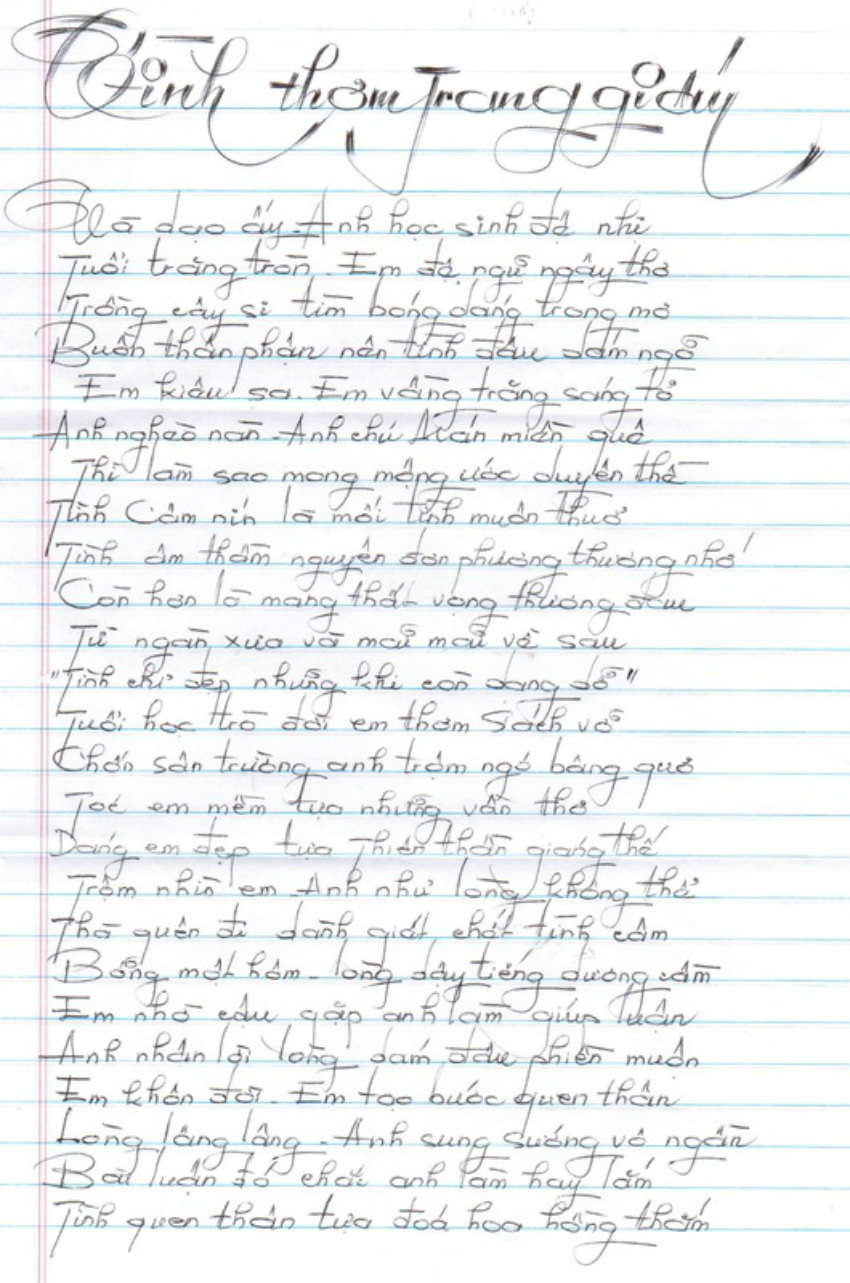 Tình thơm trang giấy
Và dạo ấy. Anh học sinh đệ nhị
Tuổi trăng tròn. Em đệ ngũ ngây thơ
Trồng cây si tìm bóng dáng trong mơ
Buồn thân phận nên tình đâu dám ngỏ
Em kiêu sa. Em vầng trăng sáng tỏ
Anh nghèo nàn. Anh chú Cuán miền quê
Thì làm sao mong mộng ước duyên thề
Tình Câm nín là mối tình muôn thuở
Tình âm thầm nguyện đơn phương thương nhớ
Còn hơn là mang thất vọng thương đau
Từ ngàn xưa và mãi mãi về sau
"Tình chỉ đẹp những khi còn dang dở"
Tuổi học trò đời em thơm Sách vở
Chốn sân trường anh trộm ngó bâng quơ
Tóc em mềm tựa những vần thơ
Dáng em đẹp tựa Thiên thần giáng thế
Trộm nhìn em. Anh như lòng không thể
Thà quên đi dành giất chất tình câm
Bổng một hôm. lòng dậy tiếng dương cầm
Em nhờ cậu gặp anh làm giúp luận
Anh nhận lời lòng dám đâu phiền muộn
Em khôn đời. Em tạo bước quen thân
Lòng lâng lâng. Anh sung sướng vô ngần
Bài luận đó chắc anh làm hay lắm
Tình quen thân tựa đoá hoa hồng thắm